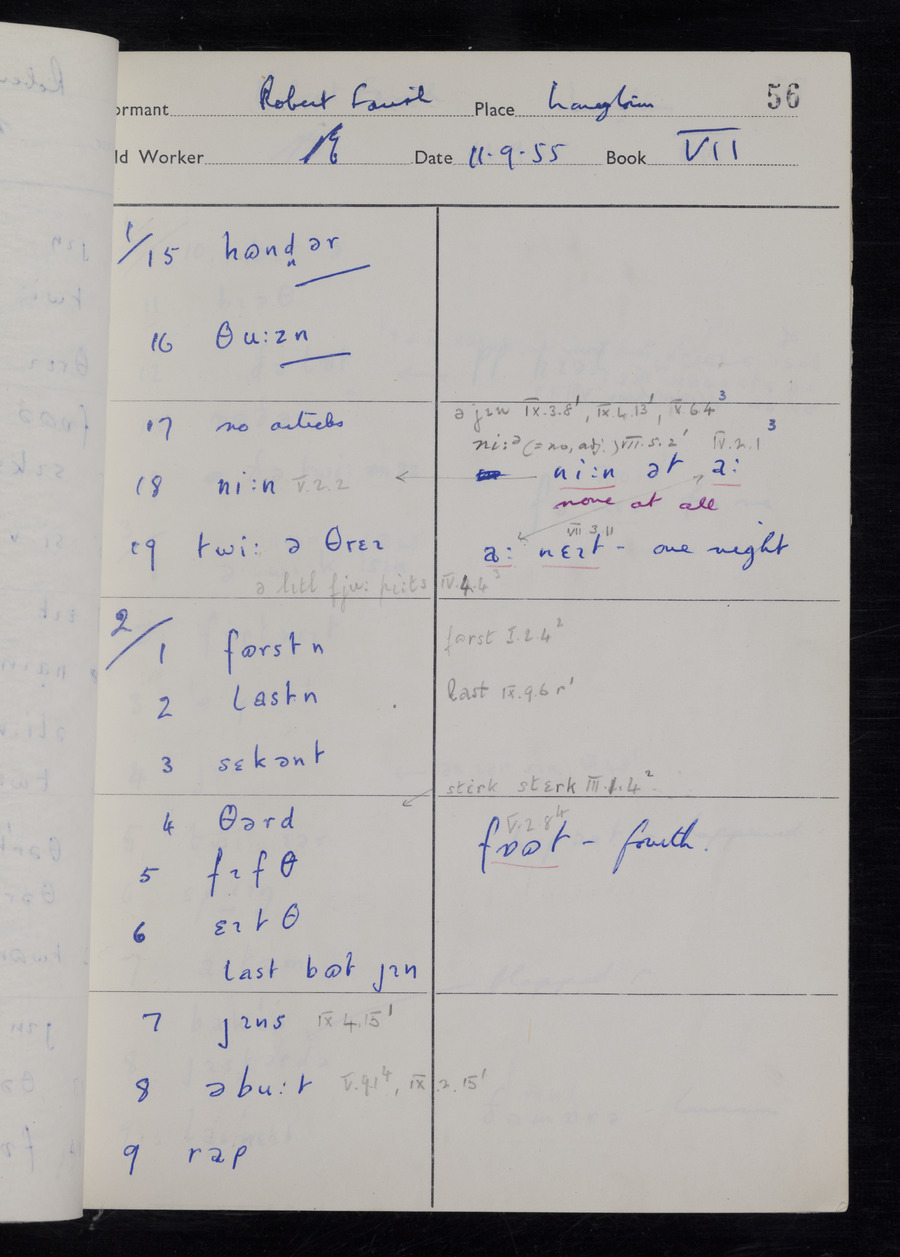 ormant Robert Place 56
ld Worker Date 11.9.55 Book VII
1/15 hɷndər
n
16 θu:zn
ə jɪn IX.3.8¹, IX.4.13¹, V.6.4³
17 no articles
ni:ə (=no, adj.) VII.5.2¹ IV.2.1³
18 ni:n V.2.2 ← ni:n ət a:
none at all
VII 3.11
19 twi: ə θrɛɪ a: nɛɪt - one night
ə lɪtl fju: pi:ts IV.4.4³
2/1 fɷrstn fɷrst I.2.4²
2 lastn last IX.9.6 r¹
3 sɛkənt
stɪrk stɛrk III.1.4²
4 θərd V.2.8⁴
fɷɷt - fourth.
5 fɪfθ
6 ɛɪtθ
last bɷt jɪn
7 jɪns IX.4.15¹
8 əbu:t V.9.1⁴, IX.2.15¹
9 rap